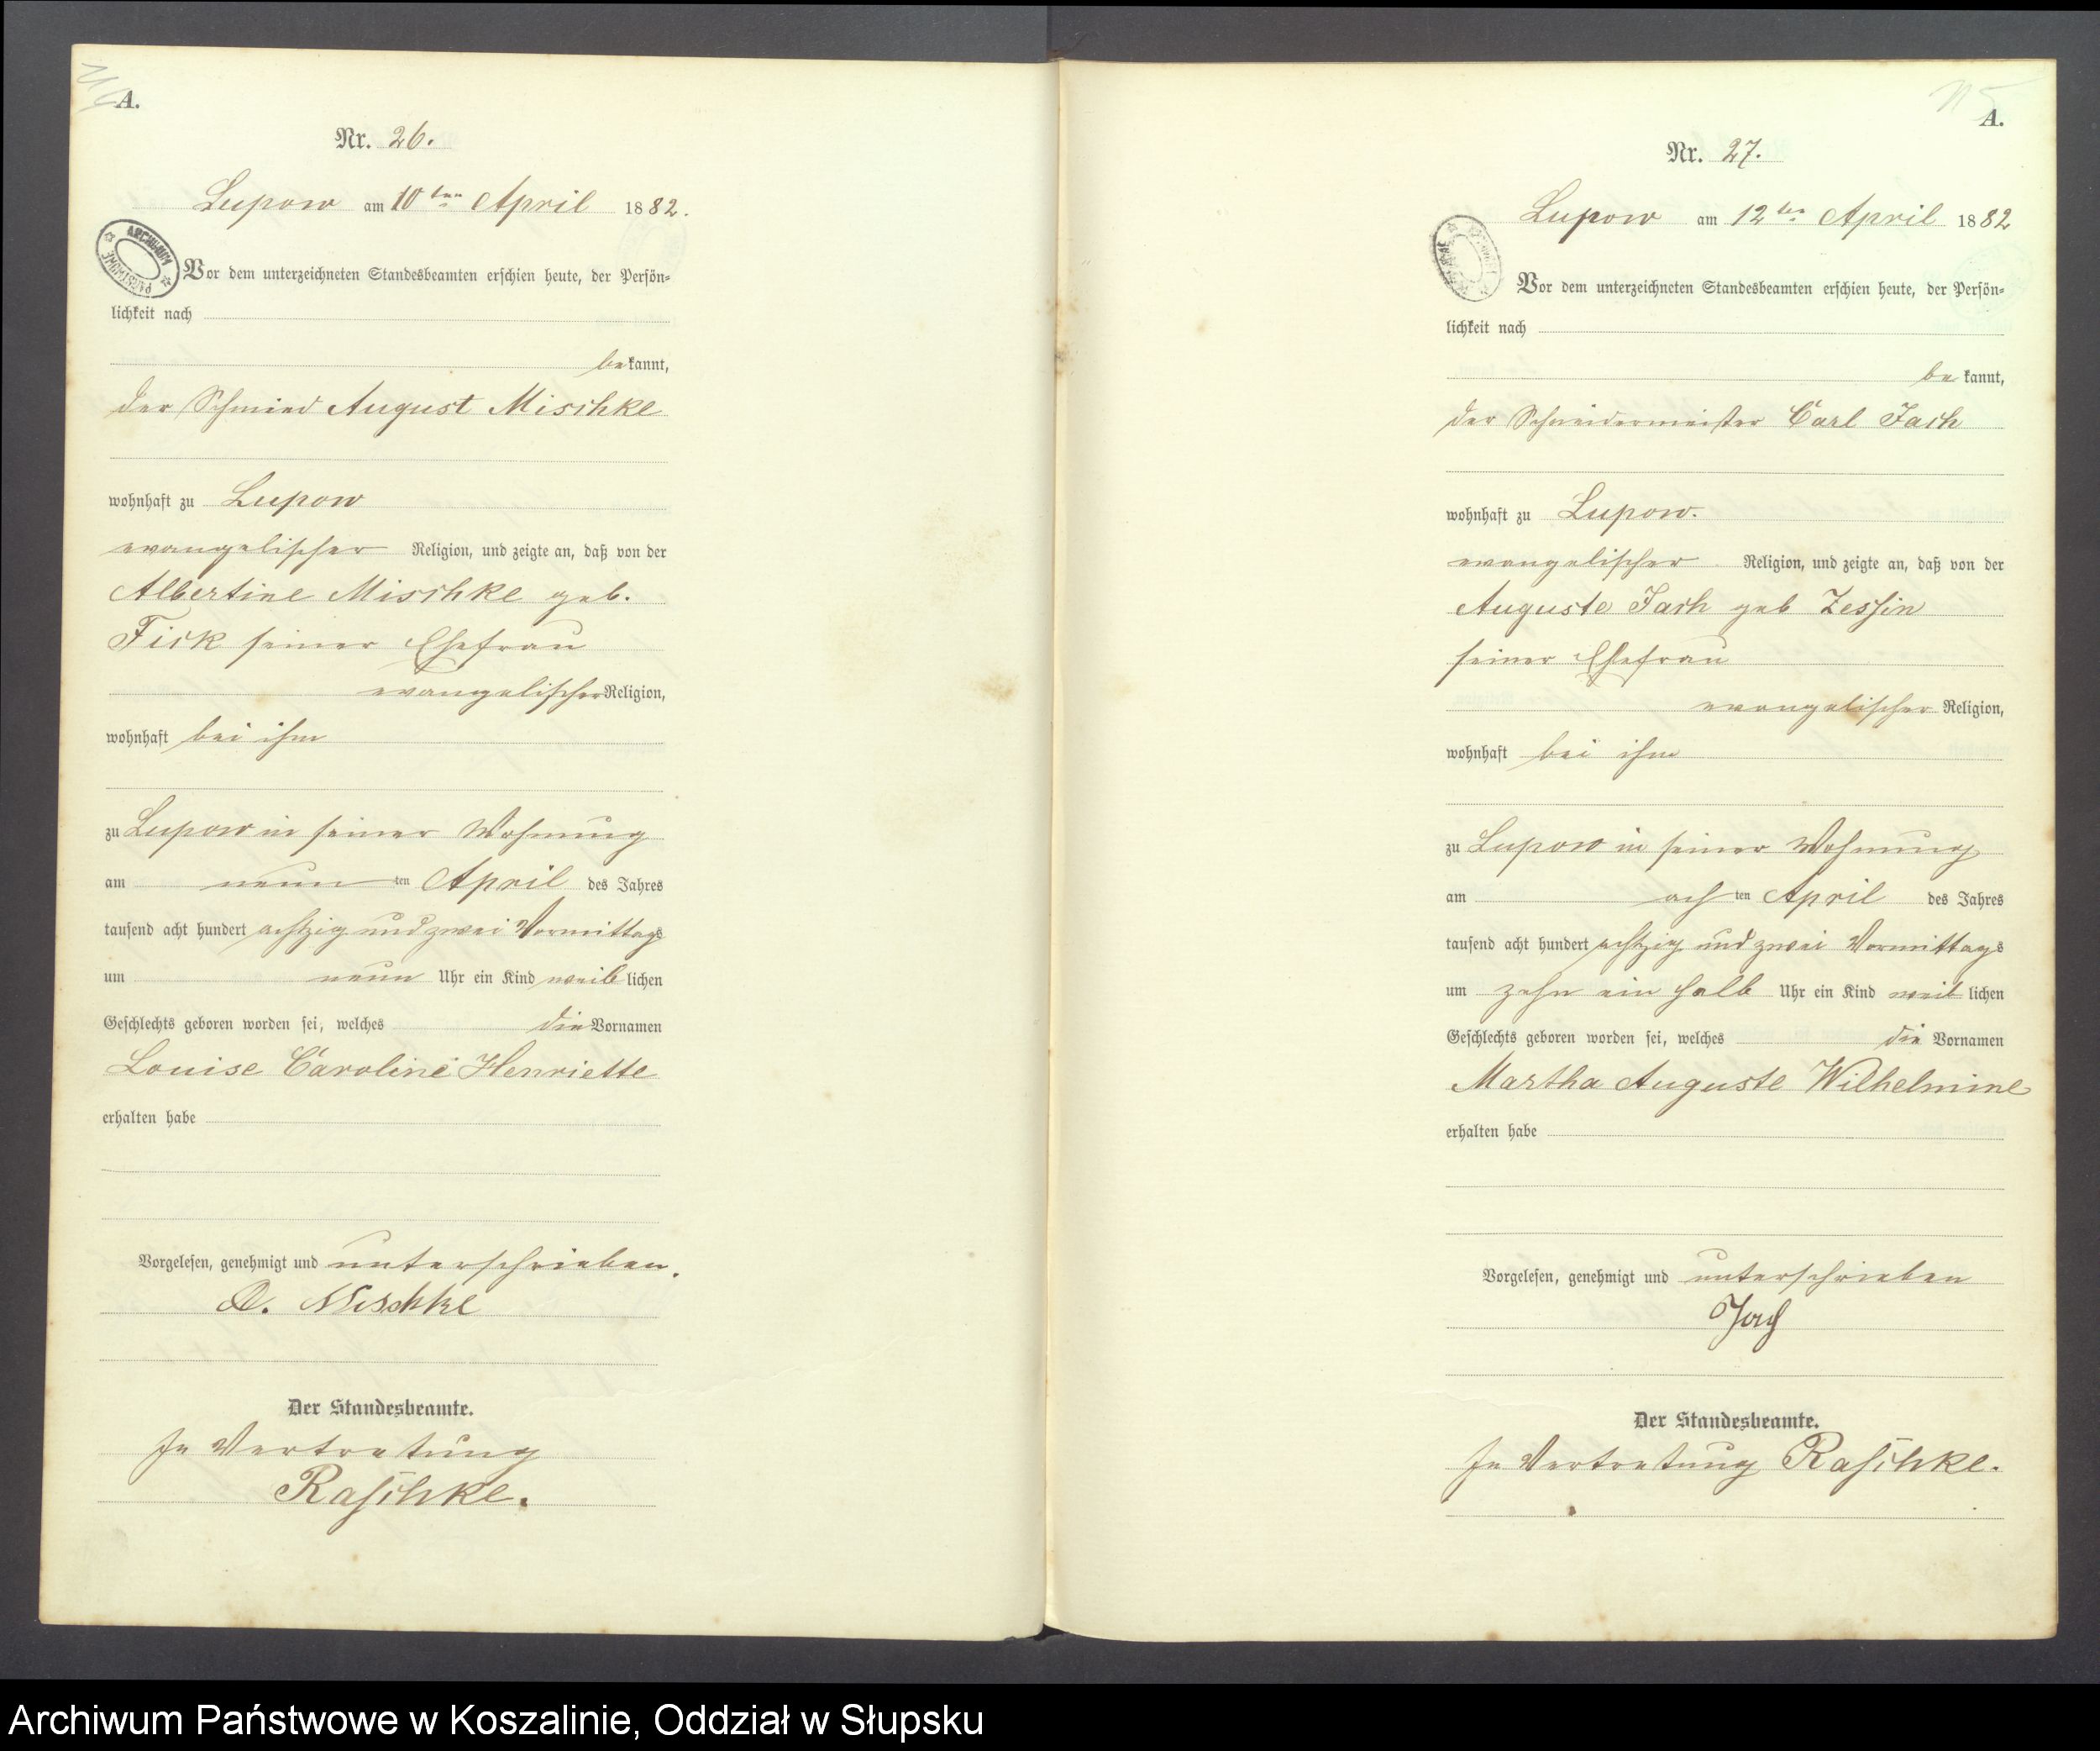 A.
Nr. 26.
Lupow am 10ten April 1882.
ARCHIWUM PAŃSTWOWE
Vor dem unterzeichneten Standesbeamten erschien heute, der Persön-
lichkeit nach
bekannt,
der Schmied August Mischke
wohnhaft zu Lupow
evangelischer Religion, und zeigte an, daß von der
Albertine Mischke geb.
Fick seiner Ehefrau
evangelischer Religion,
wohnhaft bei ihm
zu Lupow in seiner Wohnung
am neunten April des Jahres
tausend acht hundert achtzig und zwei Vormittags
um neun Uhr ein Kind weiblichen
Geschlechts geboren worden sei, welches die Vornamen
Louise Caroline Henriette
erhalten habe
Vorgelesen, genehmigt und unterschrieben.
A. Mischke
Der Standesbeamte.
In Vertretung
Raschke.
A.
Nr. 27.
Lupow am 12ten April 1882
Vor dem unterzeichneten Standesbeamten erschien heute, der Persön-
lichkeit nach
bekannt,
der Schneidermeister Carl Jach
wohnhaft zu Lupow.
evangelischer Religion, und zeigte an, daß von der
Auguste Jach geb Zessin
seiner Ehefrau
evangelischer Religion,
wohnhaft bei ihm
zu Lupow in seiner Wohnung
am achten April des Jahres
tausend acht hundert achtzig und zwei Vormittags
um zehn ein halb Uhr ein Kind weiblichen
Geschlechts geboren worden sei, welches die Vornamen
Martha Auguste Wilhelmine
erhalten habe
Vorgelesen, genehmigt und unterschrieben
Jach
Der Standesbeamte.
In Vertretung Raschke.
Archiwum Państwowe w Koszalinie, Oddział w Słupsku